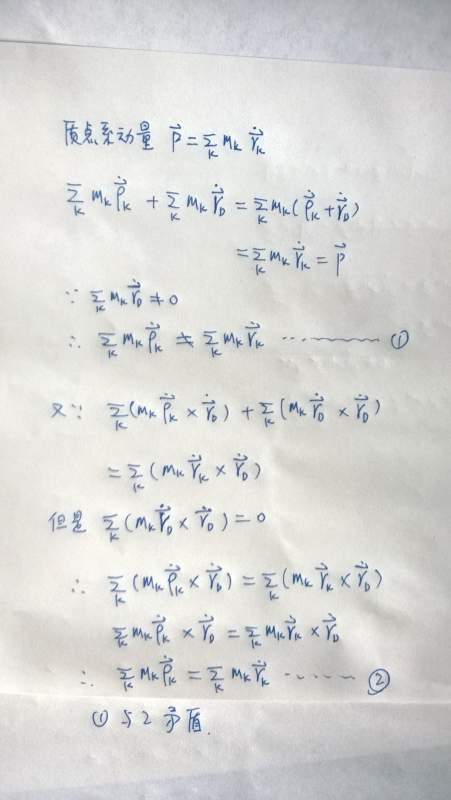 质点系动量 $\vec{P}=\sum_K m_K \dot{\vec{r}}_K$
$\sum_K m_K \dot{\vec{\rho}}_K + \sum_K m_K \dot{\vec{r}}_D = \sum_K m_K (\dot{\vec{\rho}}_K + \dot{\vec{r}}_D)$
$= \sum_K m_K \dot{\vec{r}}_K = \vec{P}$
∵ $\sum_K m_K \dot{\vec{r}}_D \neq 0$
∴ $\sum_K m_K \dot{\vec{\rho}}_K \neq \sum_K m_K \dot{\vec{r}}_K$ ………… ①
又∵ $\sum_K (m_K \dot{\vec{\rho}}_K \times \dot{\vec{r}}_D) + \sum_K (m_K \dot{\vec{r}}_D \times \dot{\vec{r}}_D)$
$= \sum_K (m_K \dot{\vec{r}}_K \times \dot{\vec{r}}_D)$
但是 $\sum_K (m_K \dot{\vec{r}}_D \times \dot{\vec{r}}_D) = 0$
∴ $\sum_K (m_K \dot{\vec{\rho}}_K \times \dot{\vec{r}}_D) = \sum_K (m_K \dot{\vec{r}}_K \times \dot{\vec{r}}_D)$
$\sum_K m_K \dot{\vec{\rho}}_K \times \dot{\vec{r}}_D = \sum_K m_K \dot{\vec{r}}_K \times \dot{\vec{r}}_D$
∴ $\sum_K m_K \dot{\vec{\rho}}_K = \sum_K m_K \dot{\vec{r}}_K$ …… ②
① 与 2 矛盾.